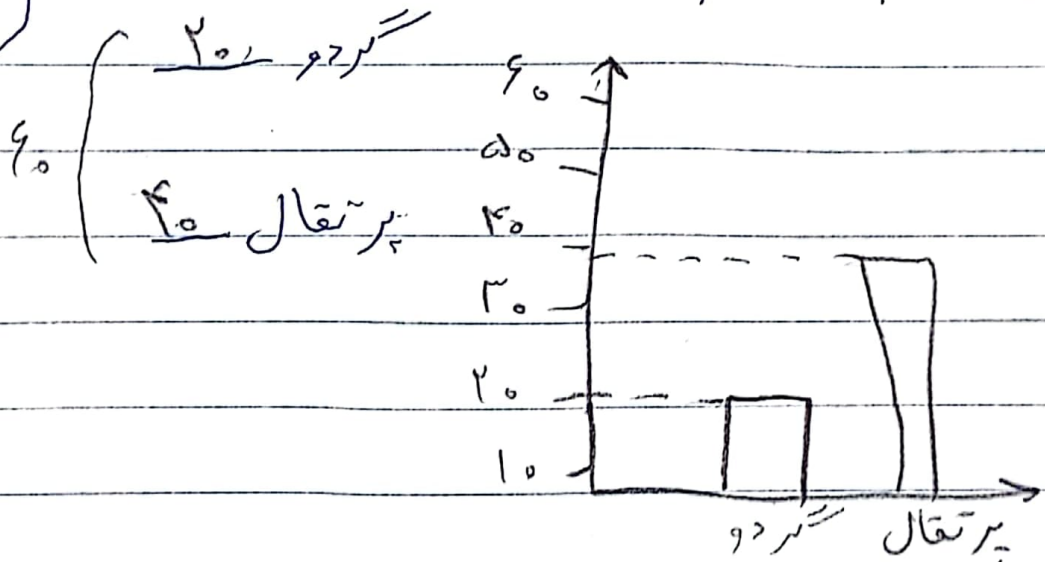 گردو ۲۰
۶۰
پرتقال ۴۰
۶۰
۵۰
۴۰
۳۰
۲۰
۱۰
گردو پرتقال